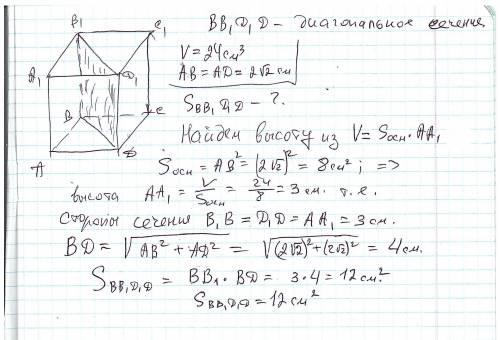 BB₁D₁D – диагональное сечение
V = 24 см³
AB = AD = 2√2 см
S BB₁D₁D – ?
Найдем высоту из V = Sосн · AA₁
Sосн = AB² = (2√2)² = 8 см² ; =>
высота AA₁ = V/Sосн = 24/8 = 3 см. т.е.
стороны сечения B₁B = D₁D = AA₁ = 3 см.
BD = √AB² + AD² = √(2√2)² + (2√2)² = 4 см.
S BB₁D₁D = BB₁ · BD = 3·4 = 12 см²
S BB₁D₁D = 12 см²
B₁ C₁
A₁ D₁
B C
A D